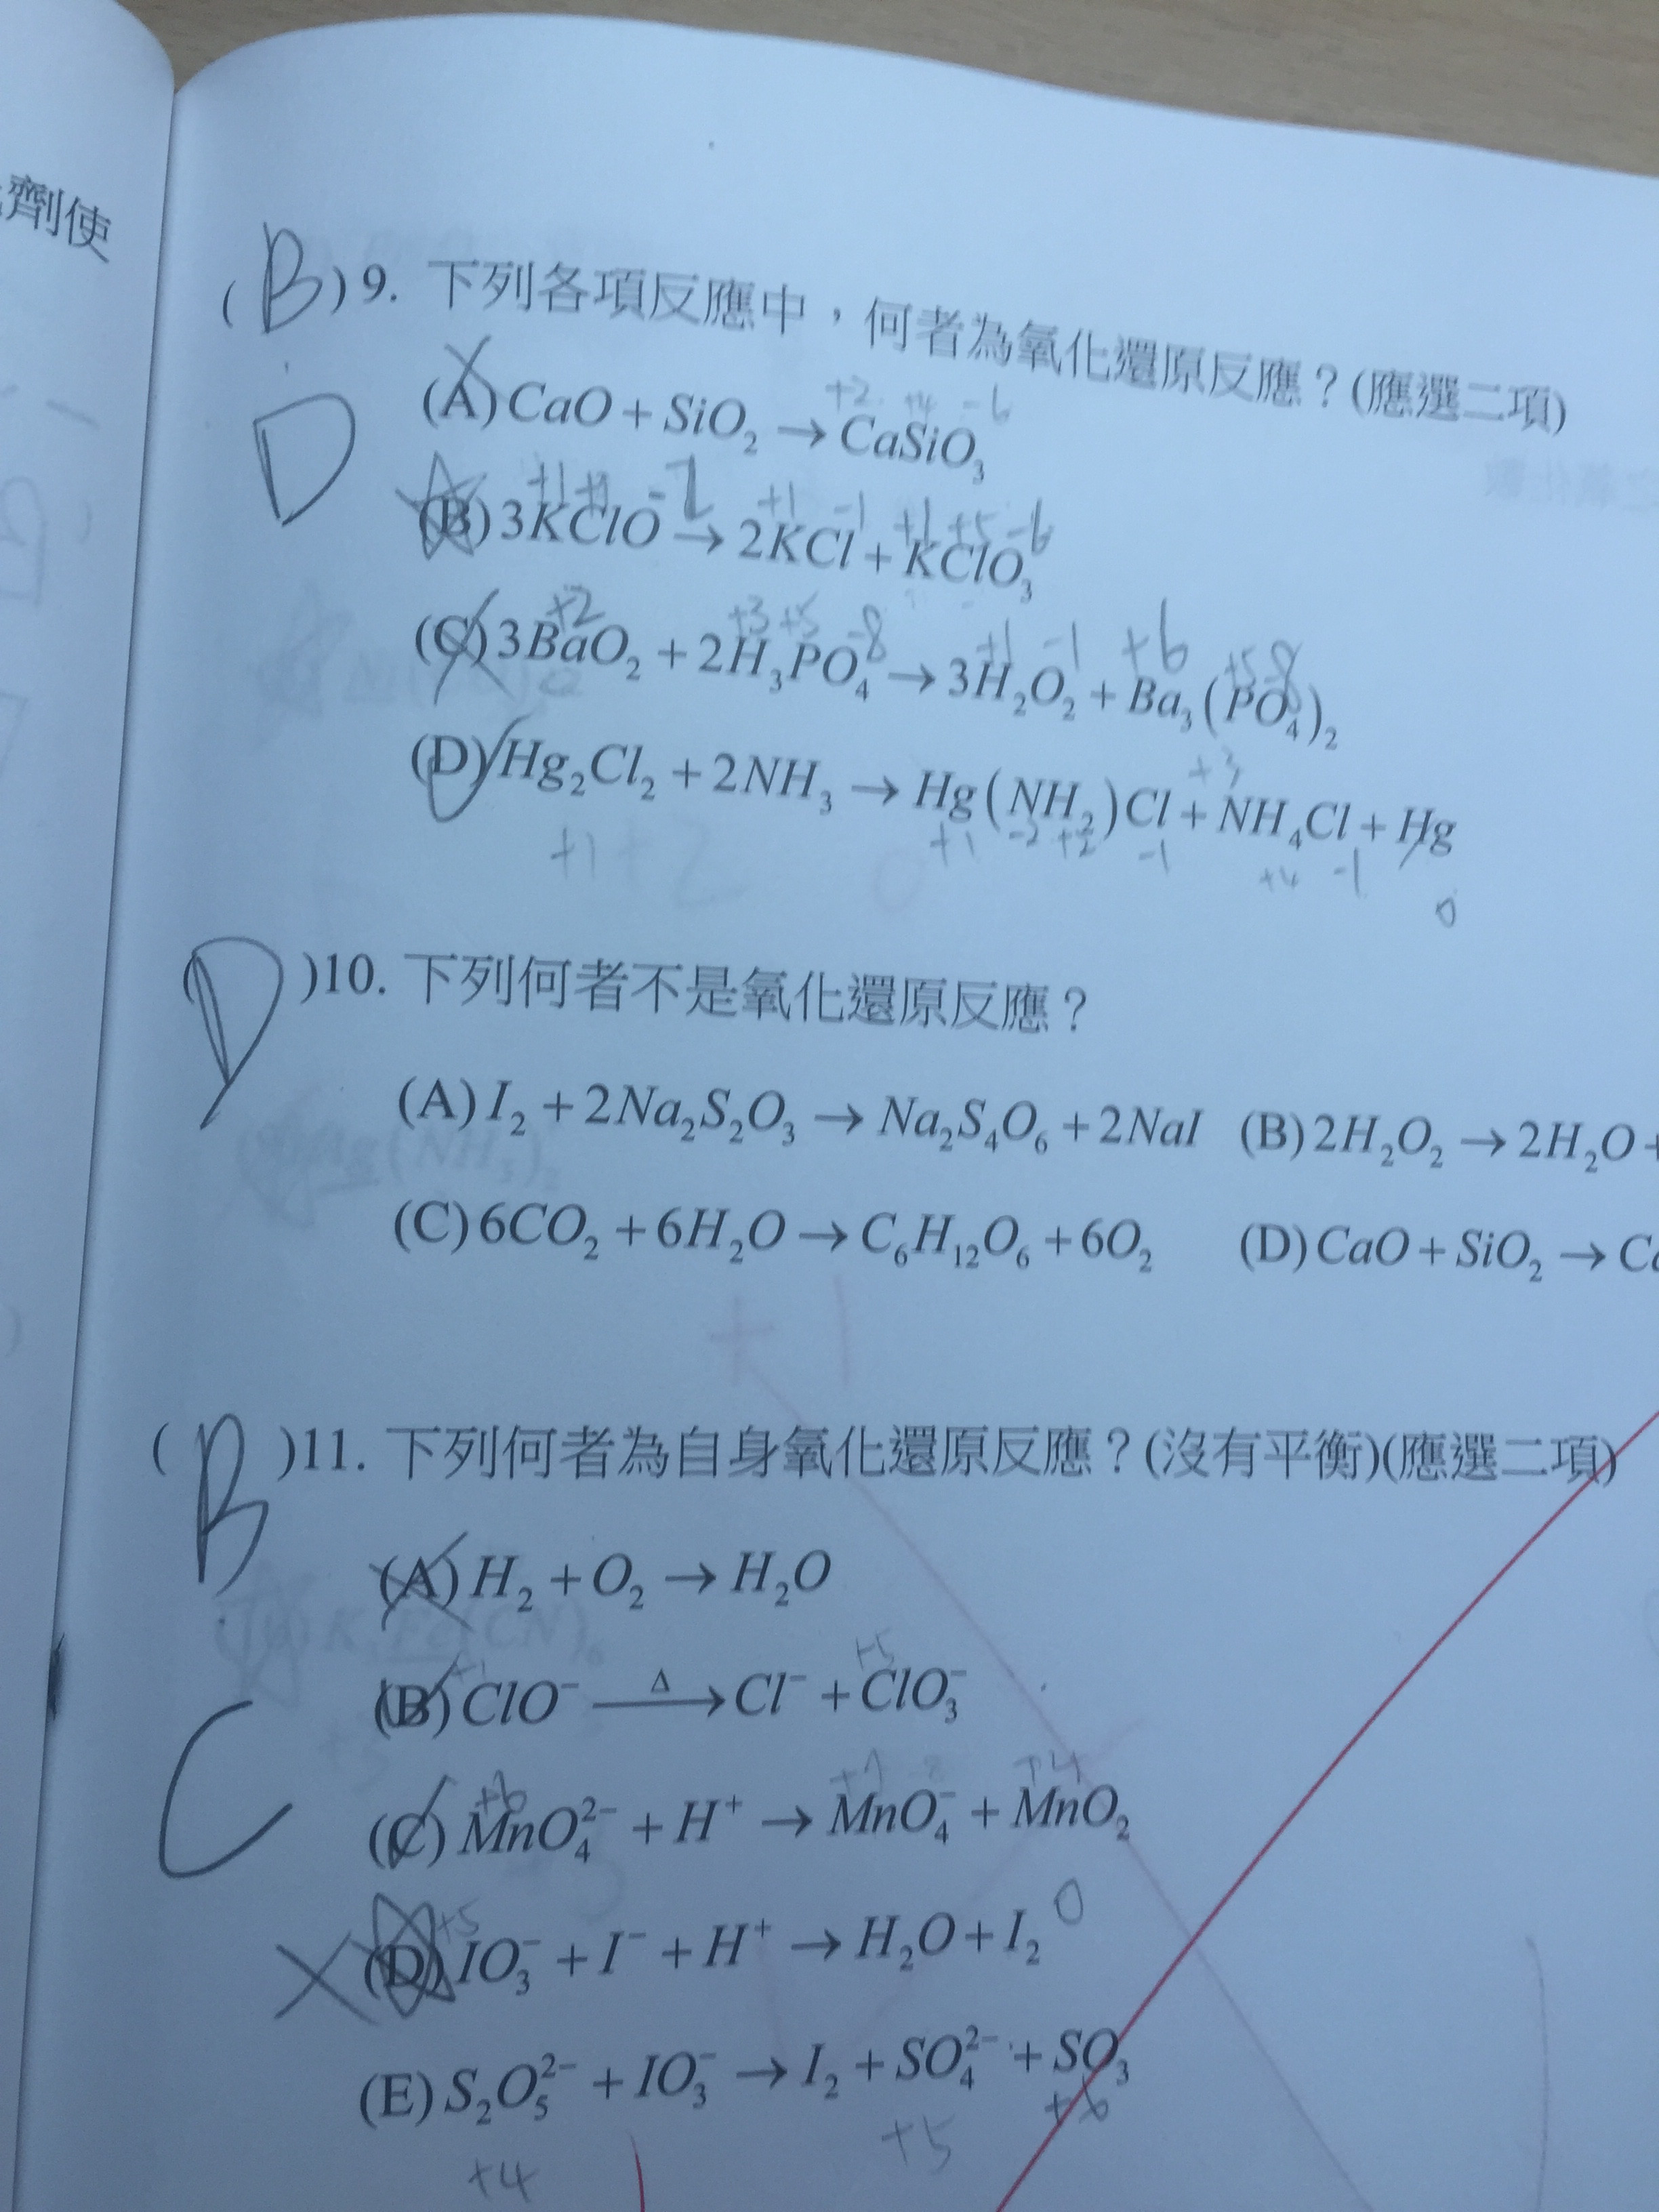 劑使
(B)9. 下列各項反應中，何者為氧化還原反應？(應選二項)
D
+2 +4 -6
(A) CaO + SiO₂ → CaSiO₃
+1 +1 -2 +1 -1 +1 +5 -6
(B) 3KClO → 2KCl + KClO₃
+2 +3 +5 -8 +1 -1 +6 +5 -8
(C) 3BaO₂ + 2H₃PO₄ → 3H₂O₂ + Ba₃(PO₄)₂
+3
(D) Hg₂Cl₂ + 2NH₃ → Hg(NH₂)Cl + NH₄Cl + Hg
+1 -2 +2 -1 +4 -1 0
(D)10. 下列何者不是氧化還原反應？
(A) I₂ + 2Na₂S₂O₃ → Na₂S₄O₆ + 2NaI (B) 2H₂O₂ → 2H₂O +
(C) 6CO₂ + 6H₂O → C₆H₁₂O₆ + 6O₂ (D) CaO + SiO₂ → Ca
(B)11. 下列何者為自身氧化還原反應？(沒有平衡)(應選二項)
C
(A) H₂ + O₂ → H₂O
+1 +5
(B) ClO⁻ —Δ→ Cl⁻ + ClO₃⁻
+6 +7 +4
(C) MnO₄²⁻ + H⁺ → MnO₄⁻ + MnO₂
+5 0
(D) IO₃⁻ + I⁻ + H⁺ → H₂O + I₂
(E) S₂O₅²⁻ + IO₃⁻ → I₂ + SO₄²⁻ + SO₃
+4 +5 +6